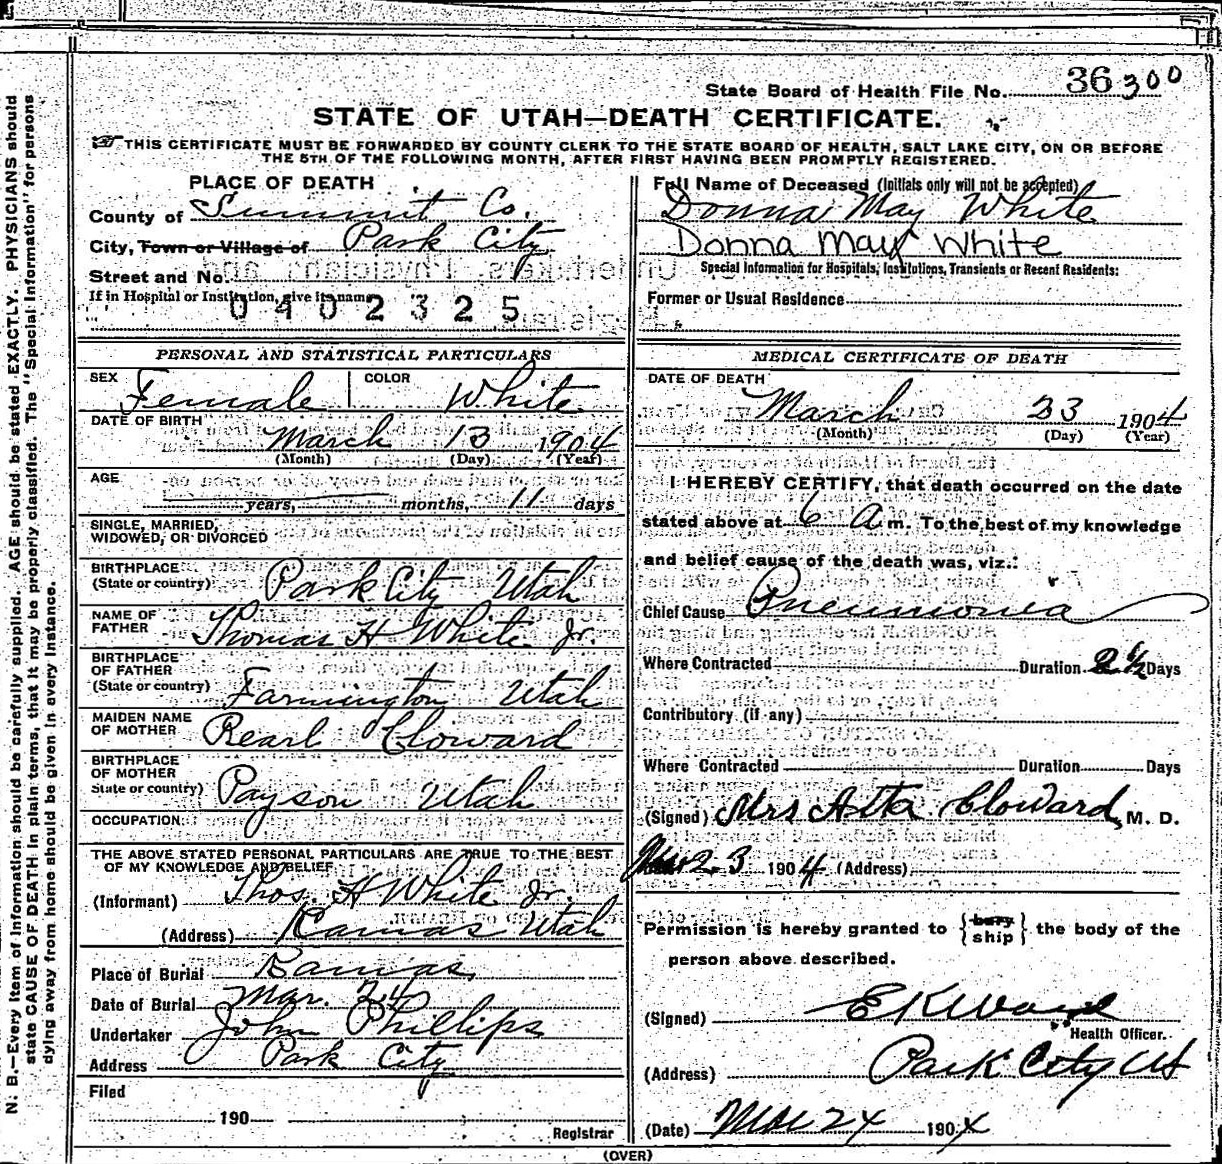 State Board of Health File No. 36300
STATE OF UTAH—DEATH CERTIFICATE.
THIS CERTIFICATE MUST BE FORWARDED BY COUNTY CLERK TO THE STATE BOARD OF HEALTH, SALT LAKE CITY, ON OR BEFORE
THE 5TH OF THE FOLLOWING MONTH, AFTER FIRST HAVING BEEN PROMPTLY REGISTERED.
PLACE OF DEATH
County of Summit Co.
City, Town or Village of Park City
Street and No.
If in Hospital or Institution, give its name
0402325
Full Name of Deceased (Initials only will not be accepted)
Donna May White
Donna May White
Special Information for Hospitals, Institutions, Transients or Recent Residents:
Former or Usual Residence
PERSONAL AND STATISTICAL PARTICULARS
SEX Female COLOR White
DATE OF BIRTH March 13 1904
(Month) (Day) (Year)
AGE
years, months, 11 days
SINGLE, MARRIED,
WIDOWED, OR DIVORCED
BIRTHPLACE
(State or country) Park City Utah
NAME OF
FATHER Thomas H White Jr.
BIRTHPLACE
OF FATHER
(State or country) Farmington Utah
MAIDEN NAME
OF MOTHER Pearl Cloward
BIRTHPLACE
OF MOTHER
State or country) Payson Utah
OCCUPATION
THE ABOVE STATED PERSONAL PARTICULARS ARE TRUE TO THE BEST
OF MY KNOWLEDGE AND BELIEF
(Informant) Thos. H White Jr.
(Address) Kamas Utah
Place of Burial Kamas
Date of Burial Mar. 24
Undertaker John Phillips
Address Park City
Filed
190
Registrar
MEDICAL CERTIFICATE OF DEATH
DATE OF DEATH
March 23 1904
(Month) (Day) (Year)
I HEREBY CERTIFY, that death occurred on the date
stated above at 6 A m. To the best of my knowledge
and belief cause of the death was, viz.:
Chief Cause Pneumonia
Where Contracted Duration 2½ Days
Contributory (if any)
Where Contracted Duration Days
(Signed) Mrs Atta Cloward, M. D.
23 1904 (Address)
Permission is hereby granted to {bury ship} the body of the
person above described.
(Signed) E K Ward
Health Officer.
(Address) Park City Ut
(Date) Mar 24 1904
(OVER)
N. B.—Every item of information should be carefully supplied. AGE should be stated EXACTLY. PHYSICIANS should
state CAUSE OF DEATH in plain terms, that it may be properly classified. The "Special Information" for persons
dying away from home should be given in every instance.